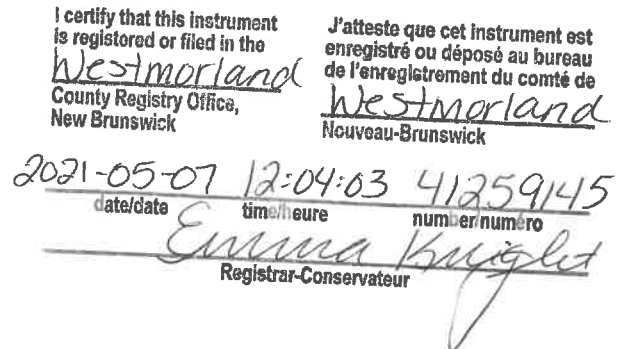 I certify that this instrument
is registered or filed in the
Westmorland
County Registry Office,
New Brunswick
J'atteste que cet instrument est
enregistré ou déposé au bureau
de l'enregistrement du comté de
Westmorland
Nouveau-Brunswick
2021-05-07 12:04:03 41259145
date/date time/heure number/numéro
Emma Knight
Registrar-Conservateur